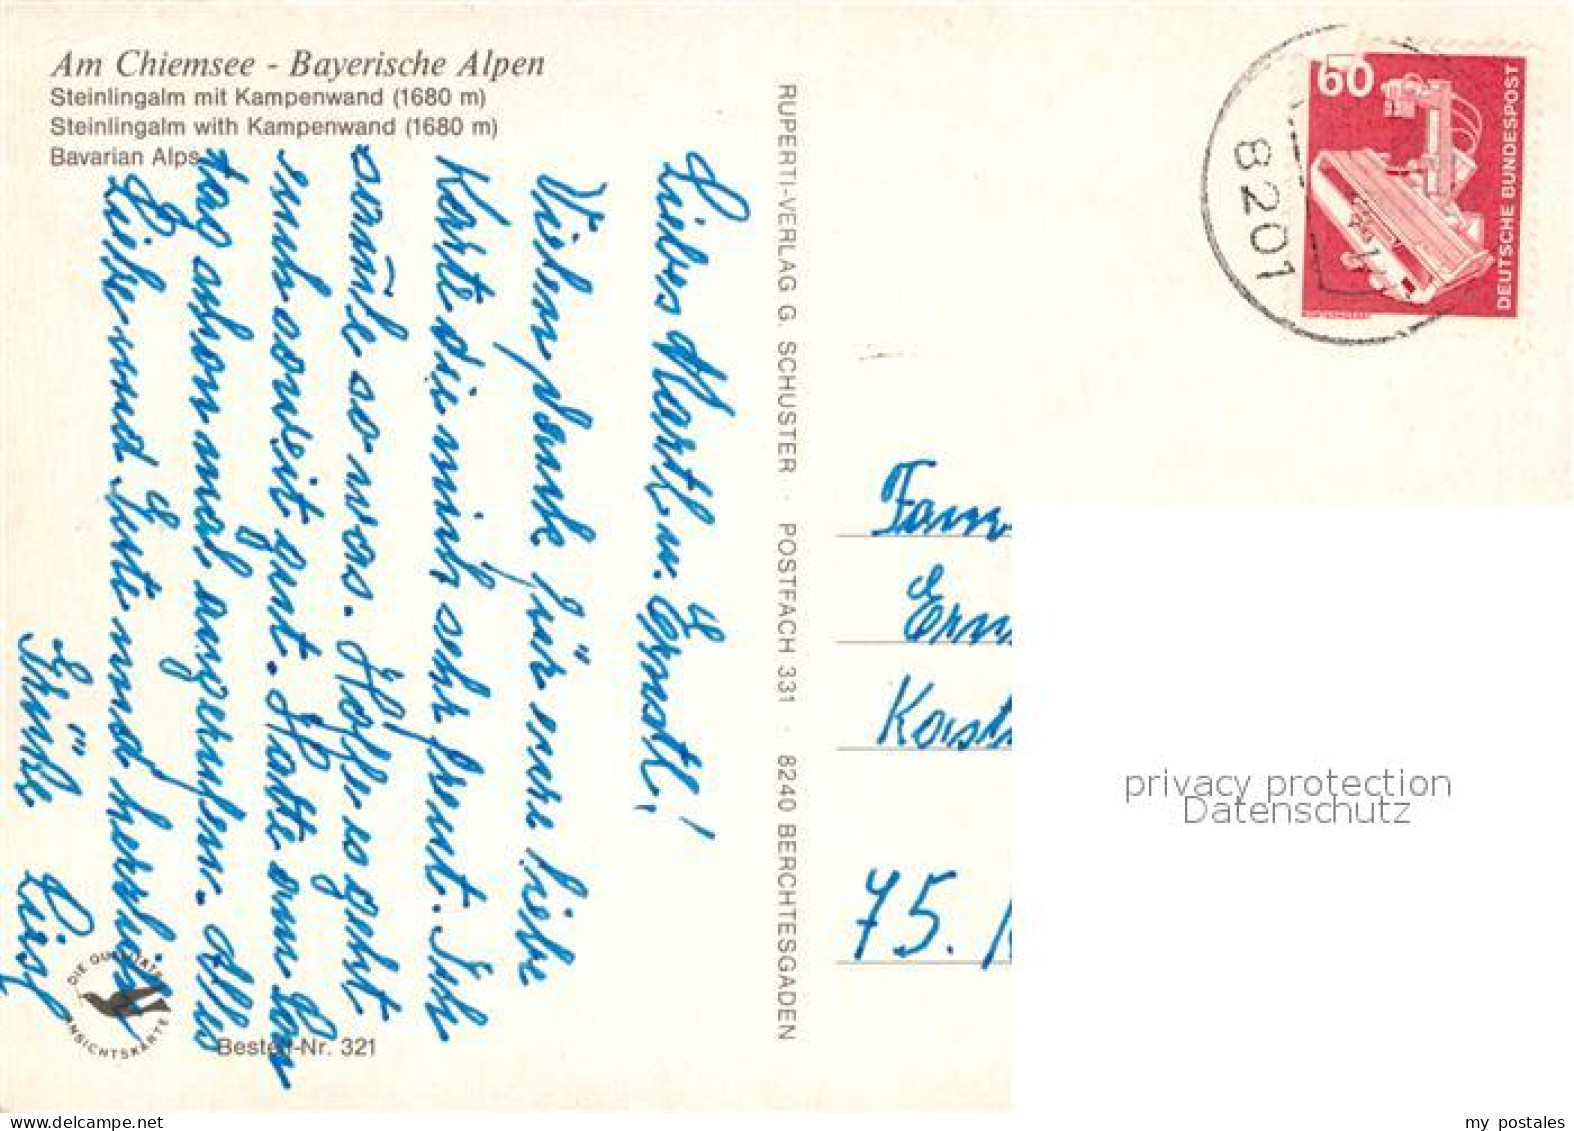 Am Chiemsee - Bayerische Alpen
Steinlingalm mit Kampenwand (1680 m)
Steinlingalm with Kampenwand (1680 m)
Bavarian Alps
Liebes Martl u. Ernstl!
Vielen Dank für eure liebe
Karte die mich sehr freut. Ich
so was. Hoffe es geht
euch soweit gut. Hatte am Sonn
tag schon mal angerufen. Alles
Liebe und Gute und herzliche
Grüße
RUPERTI-VERLAG G. SCHUSTER · POSTFACH 331 · 8240 BERCHTESGADEN
60
DEUTSCHE BUNDESPOST
8201
Fam
Ern
75.
privacy protection
Datenschutz
DIE QUALITÄTS
ANSICHTSKARTE
Bestell-Nr. 321
www.delcampe.net
my postales